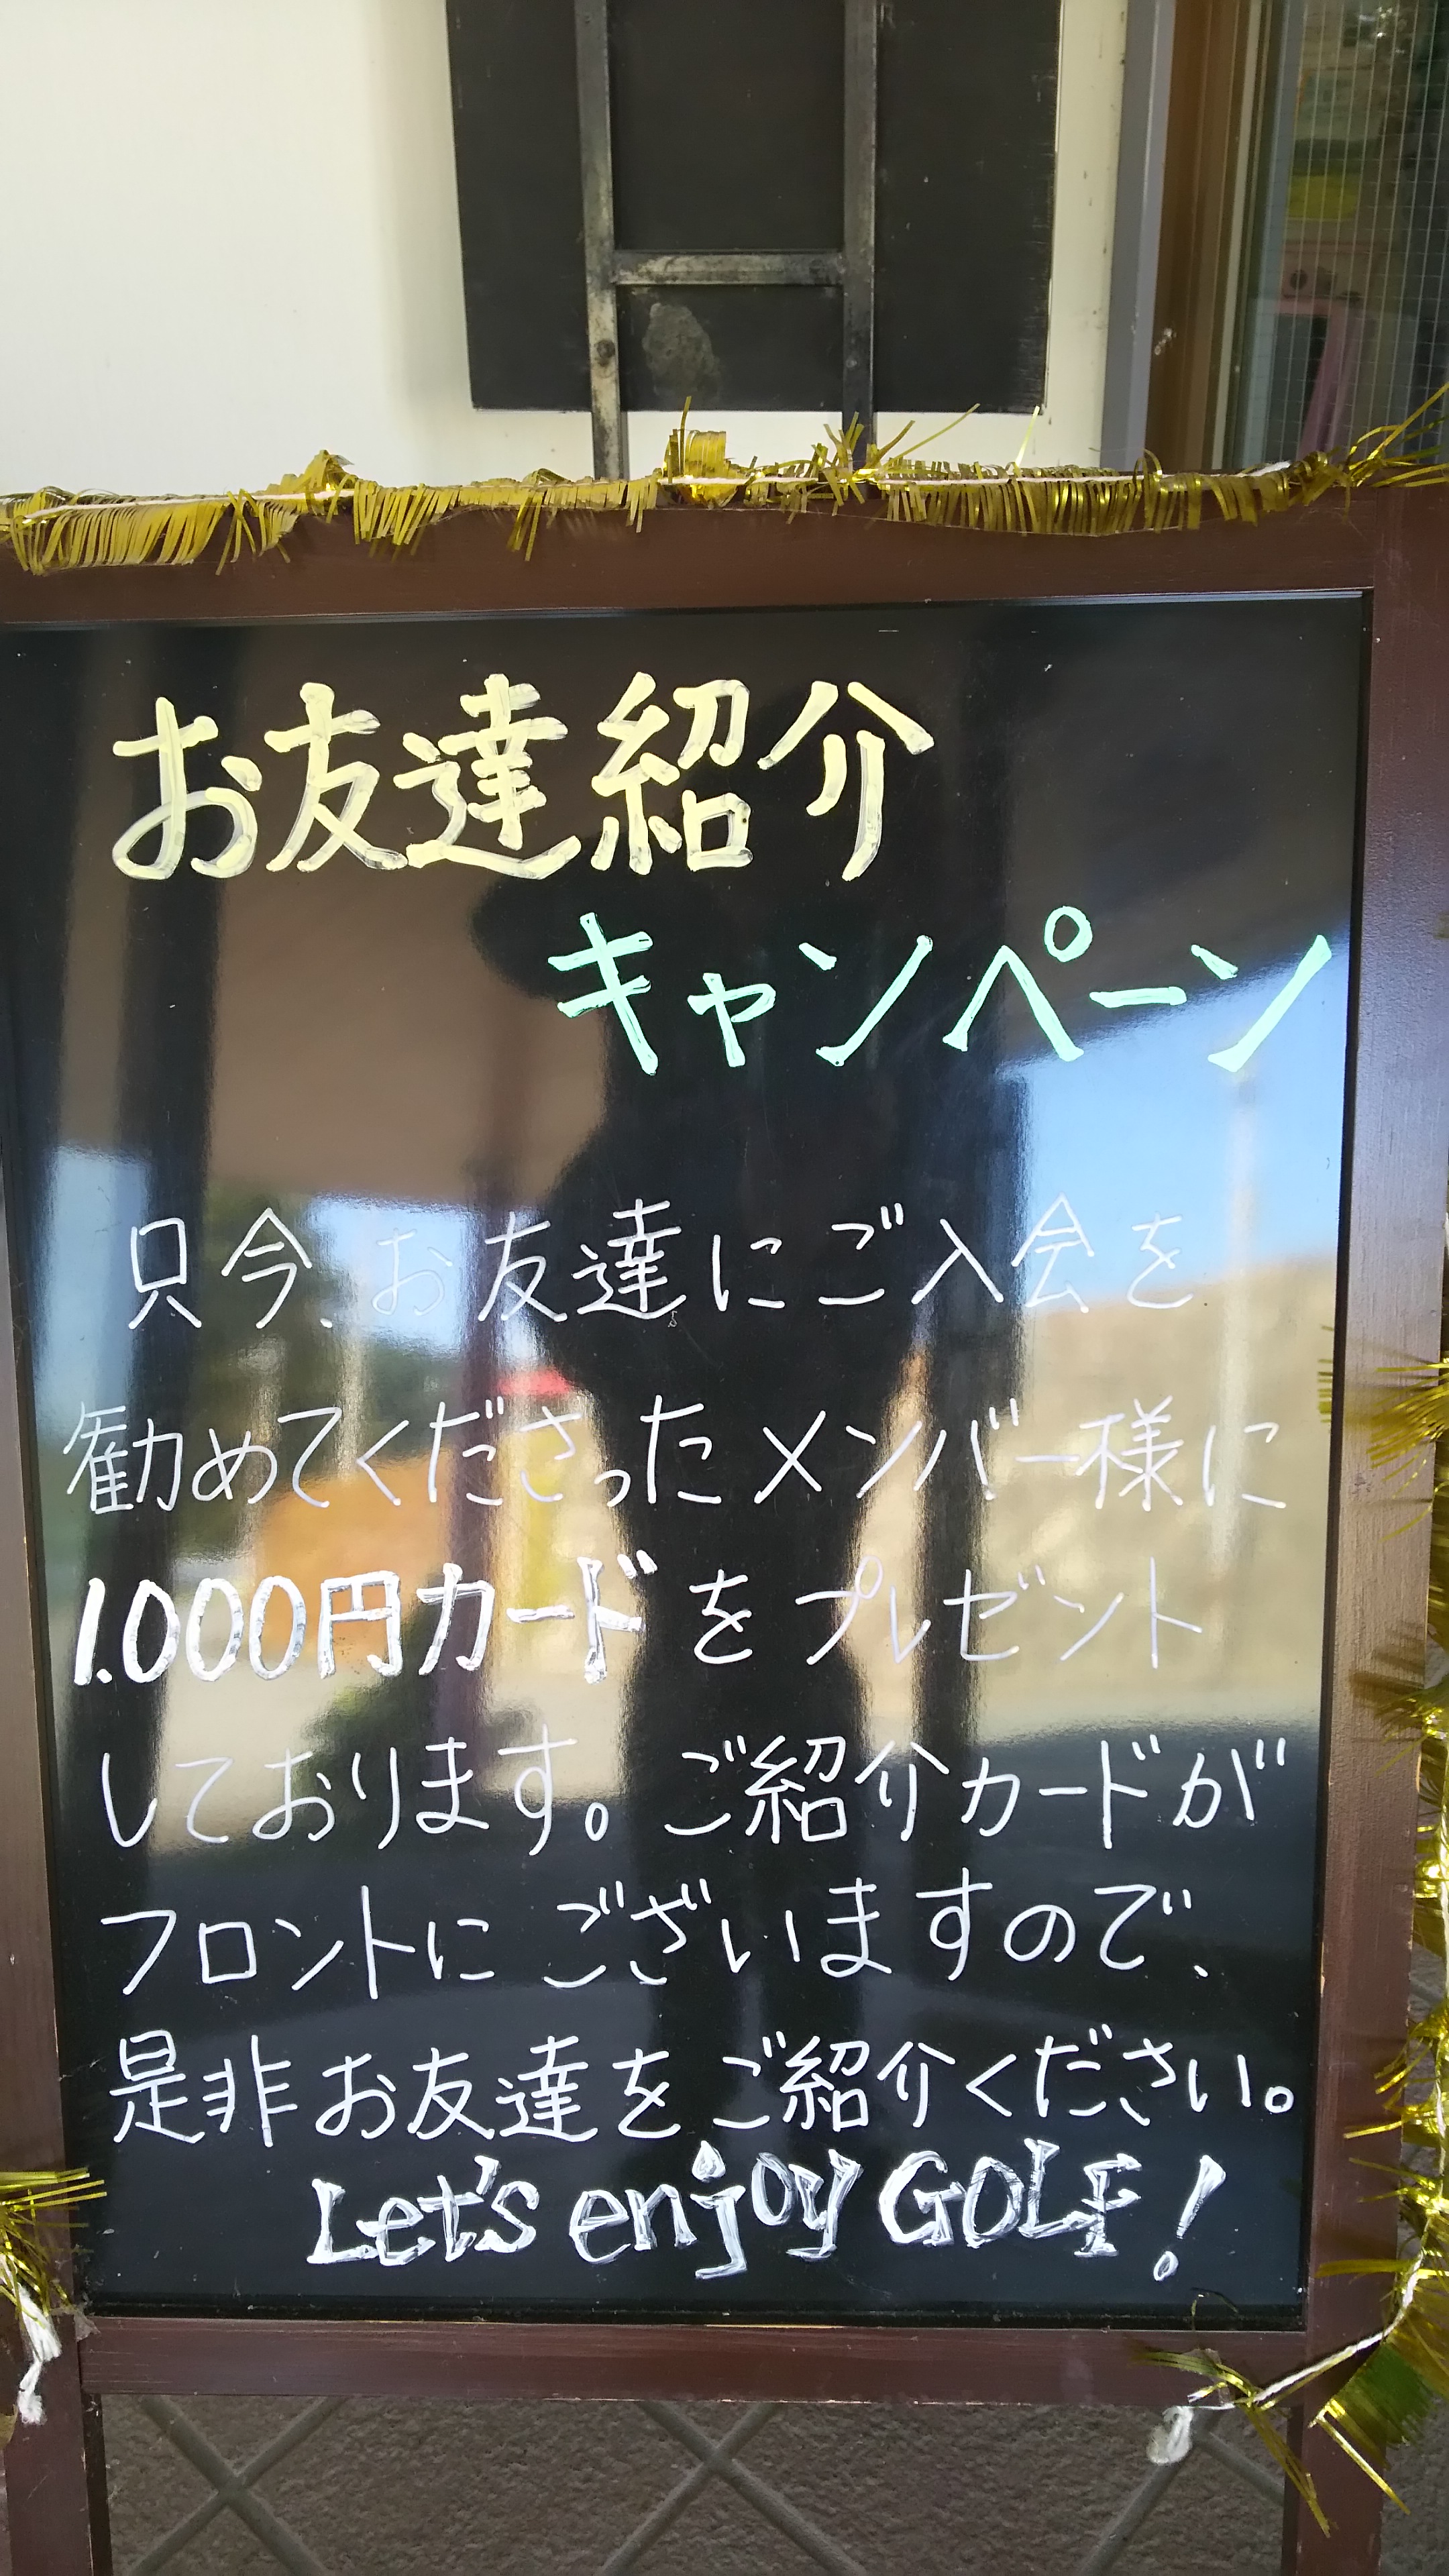 お友達紹介
キャンペーン
只今、お友達にご入会を
勧めてくださったメンバー様に
1.000円カードをプレゼント
しております。ご紹介カードが
フロントにございますので、
是非お友達をご紹介ください。
Let's enjoy GOLF!